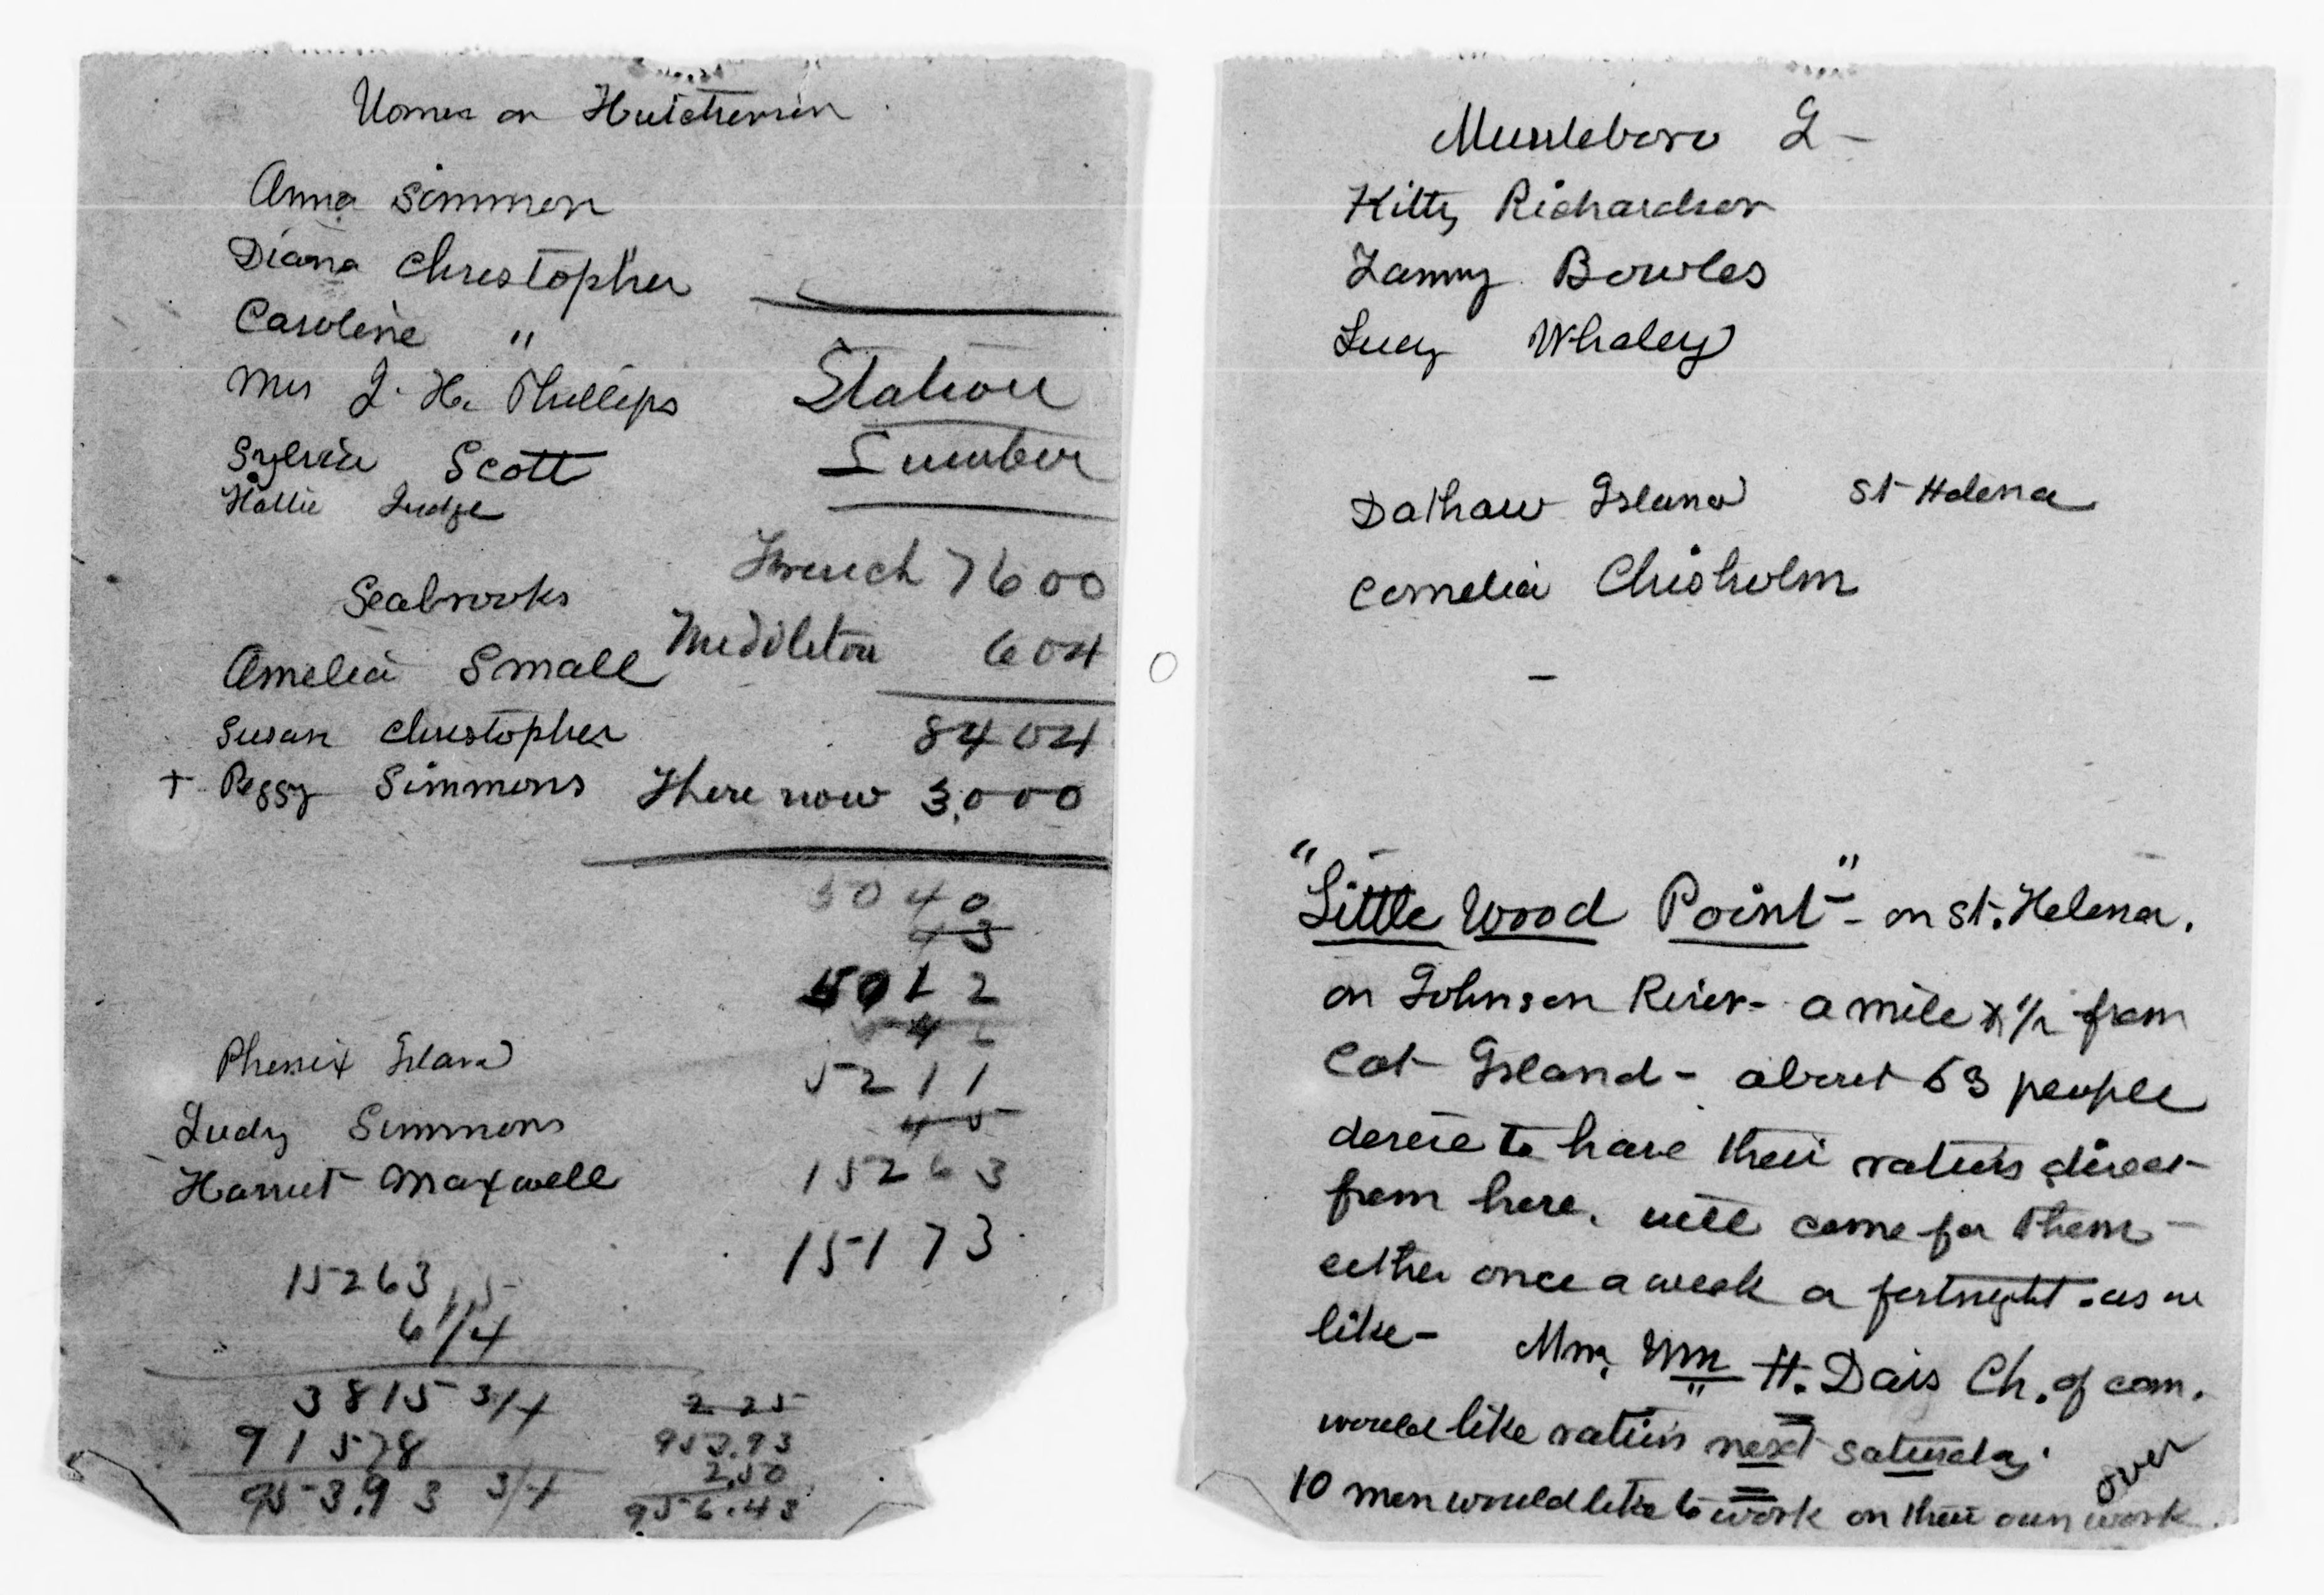 Women on Hutchinson
Anna Simmon
Diana Christopher
Caroline "
Mrs J. H. Phillips
Sylvia Scott
Hattie Judge
Seabrooks
Amelia Small
Susan Christopher
+ Peggy Simmons
Station
Lumber
French 7600
Middleton 604
8404
There now 3,000
5040
43
5012
5211
45
15263
15173
Phenix Island
Judy Simmons
Harriet Maxwell
15263
6 1/4
3815 3/4
91578
953.93 3/4
2 25
953.93
2.50
956.43
Mussleboro I-
Kitty Richardson
Fanny Bowles
Lucy Whaley
Dathaw Island St Helena
Cornelia Chisholm
"Little Wood Point" - on St. Helena.
on Johnson River - a mile & 1/2 from
Cat Island - about 53 people
desire to have their rations direct
from here. will come for them -
either once a week or fortnight. as we
like - Wm H. Dais Ch. of com.
would like rations next Saturday.
10 men would like to work on their own work.
over